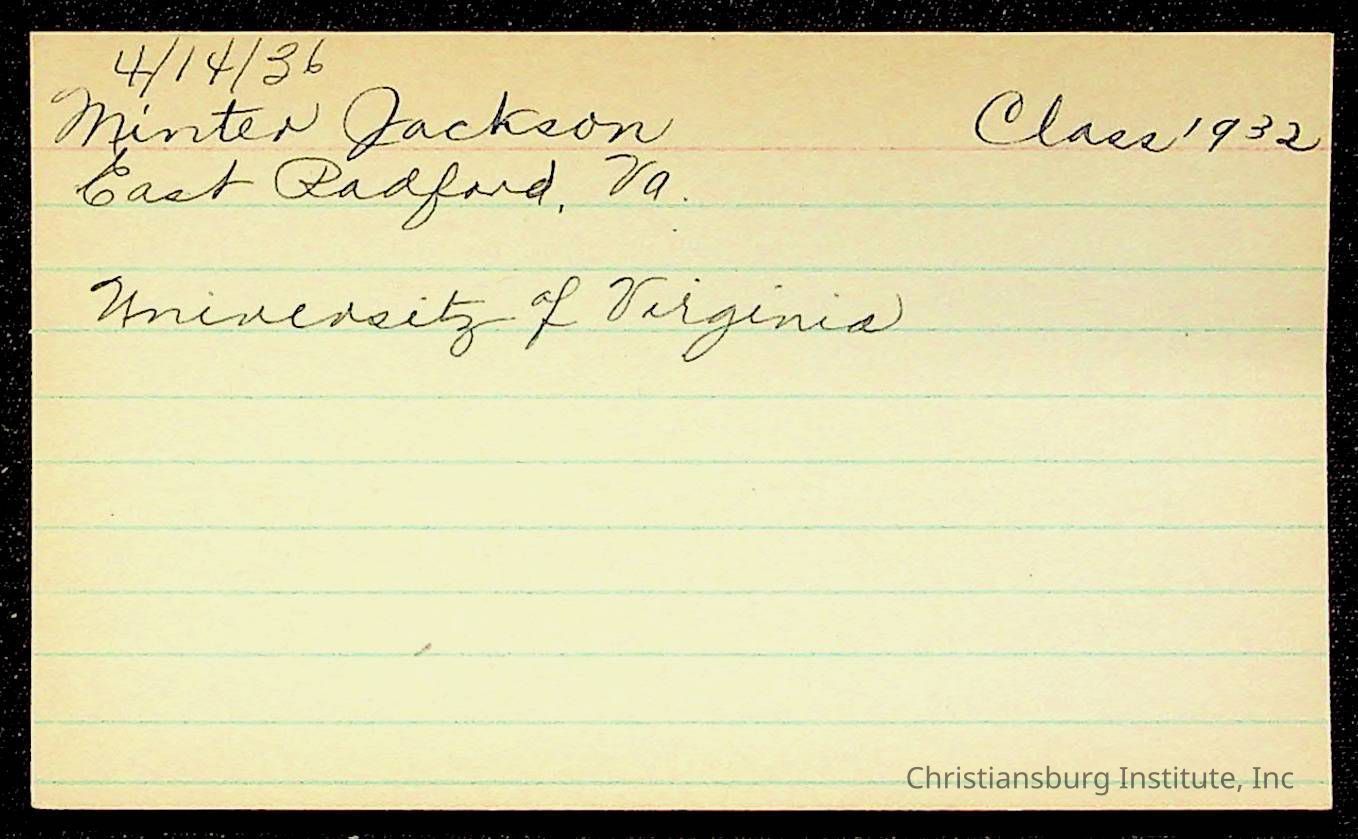 4/14/36
Minter Jackson Class 1932
East Radford, Va.
University of Virginia
Christiansburg Institute, Inc